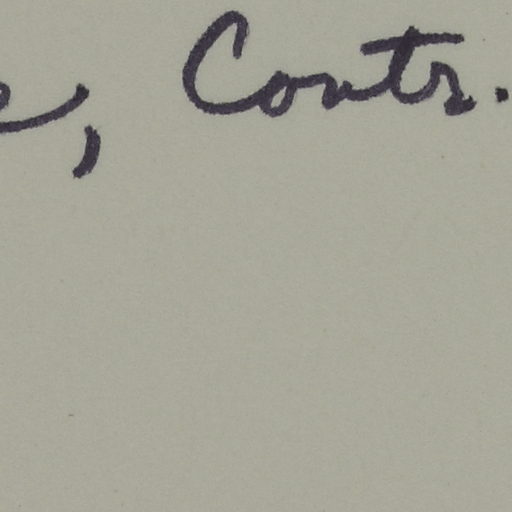 , Contr.